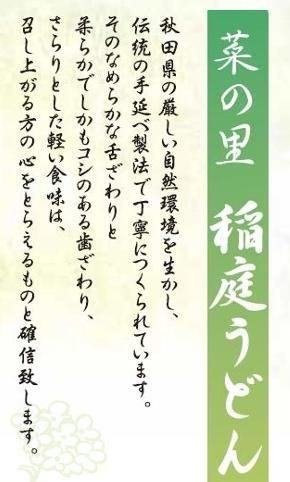 菜の里 稲庭うどん
秋田県の厳しい自然環境を生かし、
伝統の手延べ製法で丁寧につくられています。
そのなめらかな舌ざわりと
柔らかでしかもコシのある歯ざわり、
さらりとした軽い食味は、
召し上がる方の心をとらえるものと確信致します。